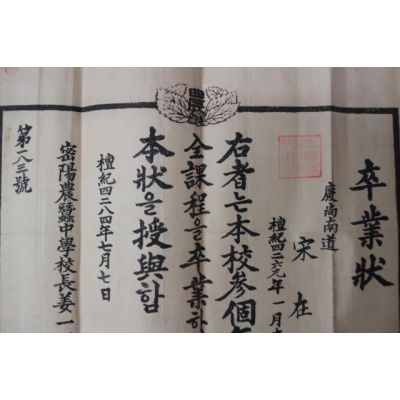 農
卒業狀
慶尙南道
宋在
檀紀四二六九年一月
右者는本校參個
全課程을卒業하
本狀을授與함
檀紀四二八四年七月七日
密陽農蠶中學校長姜一
第一八三號